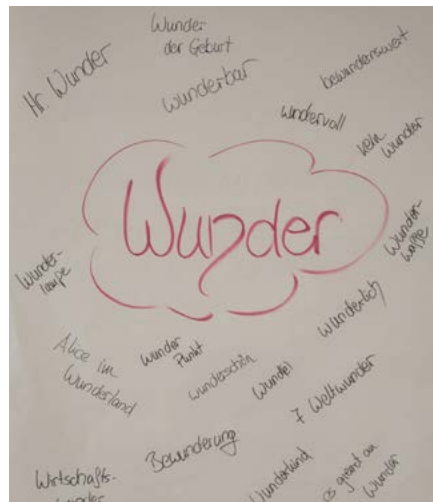 Wunder
der Geburt
Hr. Wunder
wunderbar
bewundernswert
wundervoll
kein
Wunder
Wunder
Wunder-
waffe
Wunder-
lampe
wunderlich
Alice im
Wunderland
wunder
Punkt
wunderschön
7 Weltwunder
Bewunderung
Wirtschafts-
wunder
Wunderkind
es grenzt an
Wunder